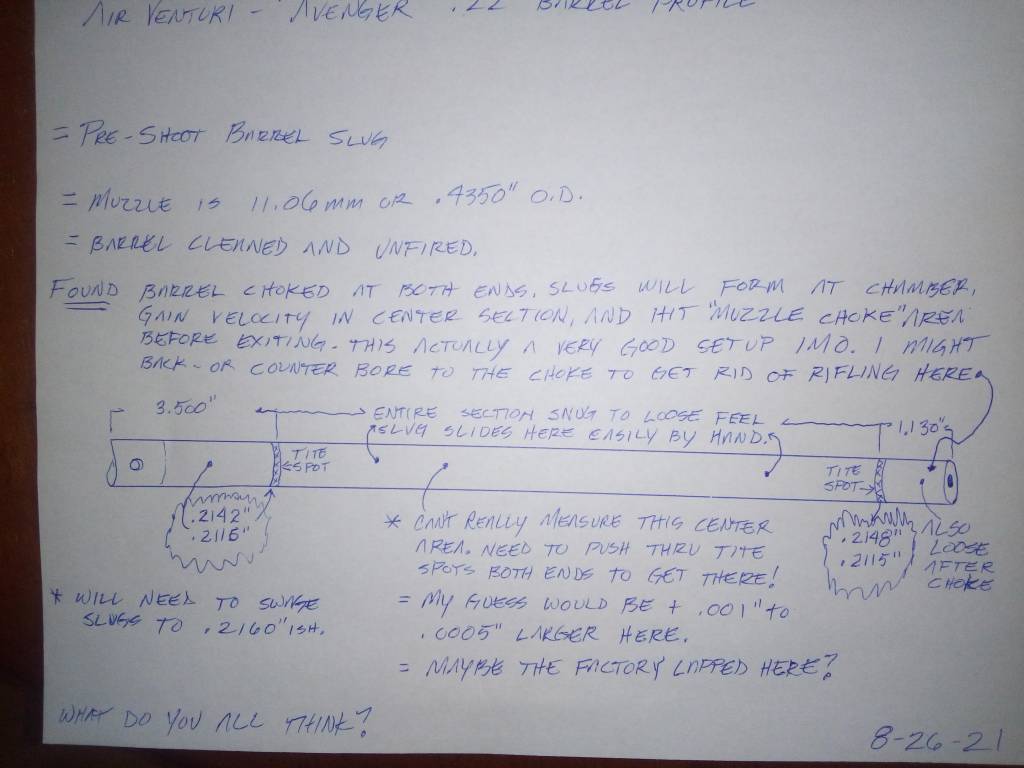 AIR VENTURI - AVENGER .22 BARREL PROFILE
= PRE-SHOOT BARREL SLUG
= MUZZLE IS 11.06mm OR .4350" O.D.
= BARREL CLEANED AND UNFIRED.
FOUND BARREL CHOKED AT BOTH ENDS. SLUGS WILL FORM AT CHAMBER,
GAIN VELOCITY IN CENTER SECTION, AND HIT "MUZZLE CHOKE" AREA
BEFORE EXITING. THIS ACTUALLY A VERY GOOD SETUP IMO. I MIGHT
BACK- OR COUNTER BORE TO THE CHOKE TO GET RID OF RIFLING HERE.
3.500"
ENTIRE SECTION SNUG TO LOOSE FEEL
SLUG SLIDES HERE EASILY BY HAND.
1.130"
TITE
SPOT
TITE
SPOT
.2142"
.2116"
* CAN'T REALLY MEASURE THIS CENTER
AREA. NEED TO PUSH THRU TITE
SPOTS BOTH ENDS TO GET THERE!
= MY GUESS WOULD BE + .001" TO
.0005" LARGER HERE.
= MAYBE THE FACTORY LAPPED HERE?
.2148"
.2115"
ALSO
LOOSE
AFTER
CHOKE
* WILL NEED TO SWAGE
SLUGS TO .2160" ISH.
WHAT DO YOU ALL THINK?
8-26-21